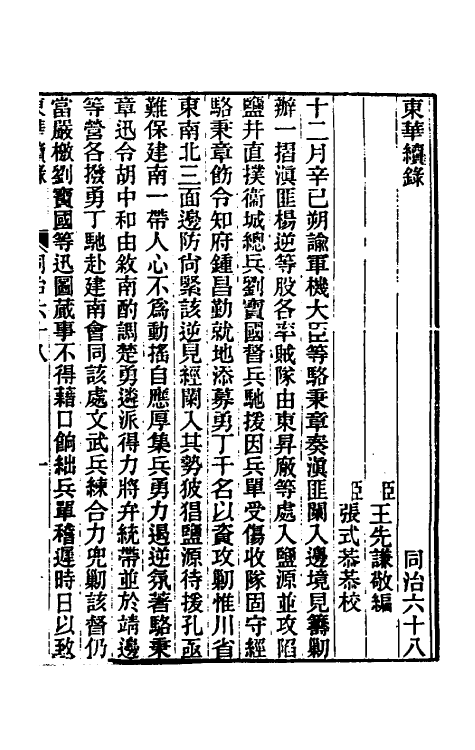 東華續錄　同治六十八
臣王先謙敬編
臣張式恭恭校
十二月辛巳朔諭軍機大臣等駱秉章奏滇匪闌入邊境見籌勦
辦一摺滇匪楊逆等股各率賊隊由東昇厰等處入鹽源並攻陷
鹽井直撲衞城總兵劉寶國督兵馳援因兵單受傷收隊固守經
駱秉章飭令知府鍾昌勤就地添募勇丁千名以資攻勦惟川省
東南北三面邊防尙緊該逆見經闌入其勢彼猖鹽源待援孔亟
難保建南一帶人心不爲動搖自應厚集兵勇力遏逆氛著駱秉
章迅令胡中和由敘南酌調楚勇遴派得力將弁統帶並於靖邊
等營各撥勇丁馳赴建南會同該處文武兵練合力兜勦該督仍
當嚴檄劉寶國等迅圖蕆事不得藉口餉絀兵單稽遲時日以致
東華續錄　同治六十八　一